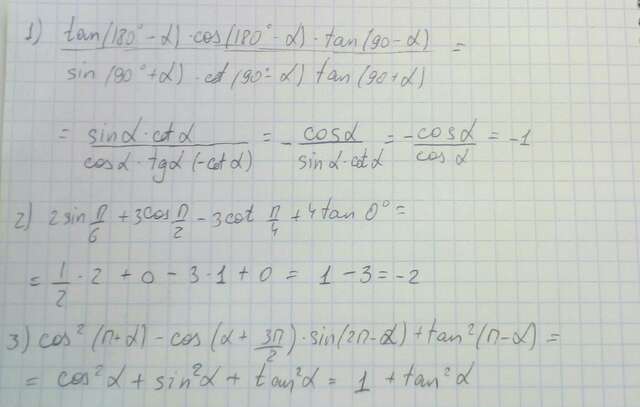 1) tan(180° - α) · cos(180° - α) · tan(90 - α) / sin(90° + α) · cot(90° - α) tan(90 + α) =
= sin α · cot α / cos α · tg α (-cot α) = - cos α / sin α · cot α = - cos α / cos α = -1
2) 2 sin п/6 + 3 cos п/2 - 3 cot п/4 + 4 tan 0° =
= 1/2 · 2 + 0 - 3 · 1 + 0 = 1 - 3 = -2
3) cos² (п+α) - cos (α + 3п/2) · sin(2п-α) + tan² (п-α) =
= cos² α + sin² α + tan² α = 1 + tan² α